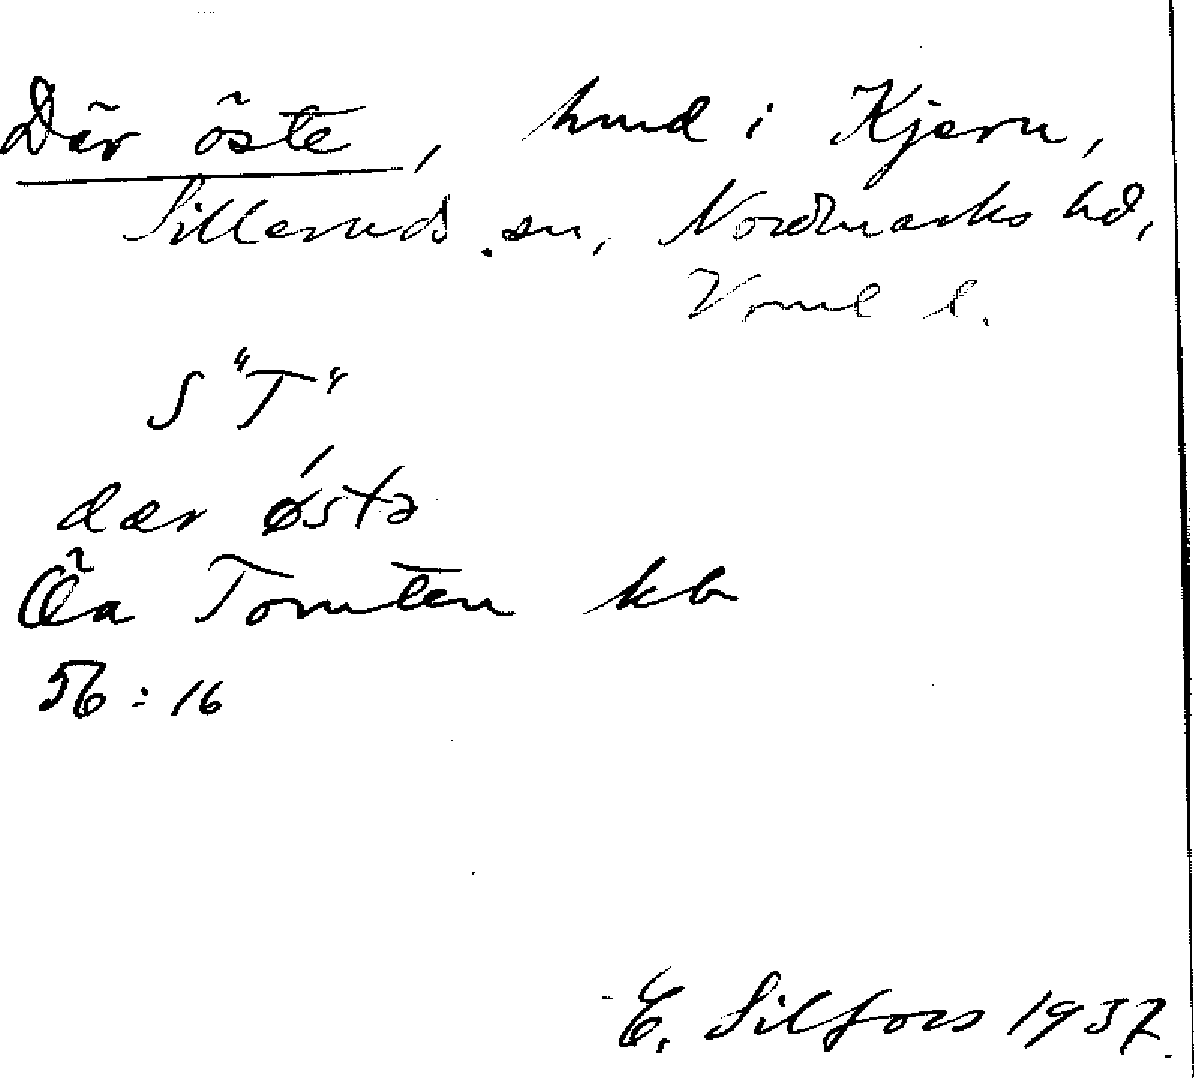 Där öste, hmd i Kjern,
Silleruds sn, Nordmarks hd,
Vrml l.
S "T"
dær ǿstə
Öa Tomten kb
56:16
E. Silfors 1937